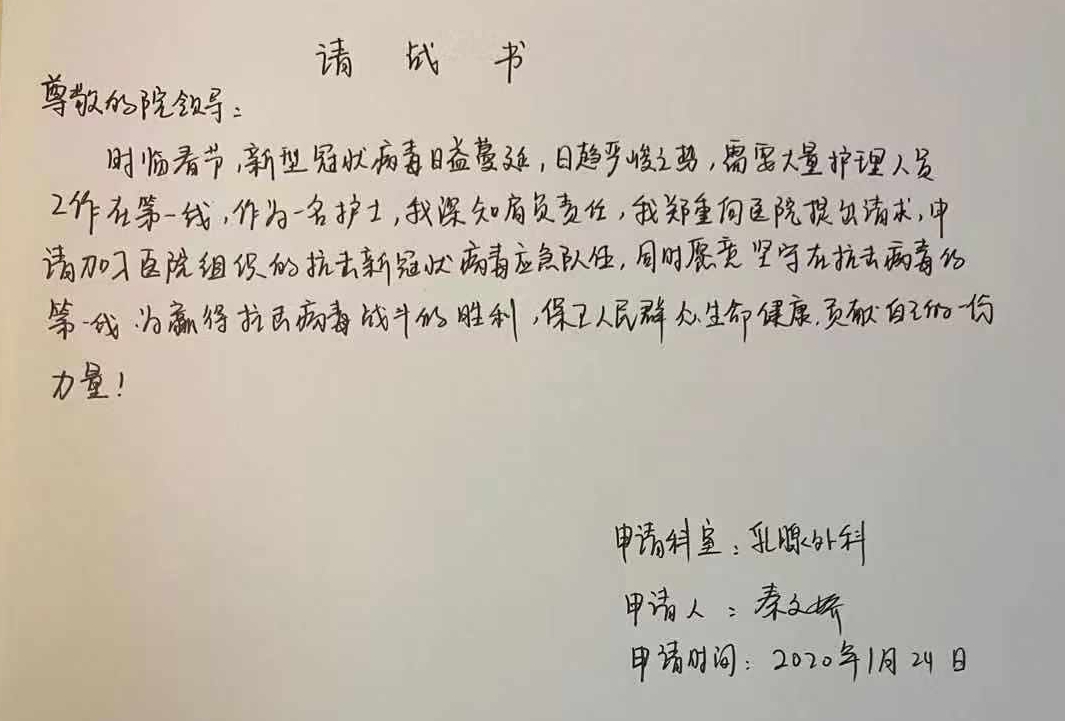 请战书
尊敬的院领导：
时临春节，新型冠状病毒日益蔓延，日趋严峻之势，需要大量护理人员
工作在第一线，作为一名护士，我深知肩负责任，我郑重向医院提出请求，申
请加入医院组织的抗击新冠状病毒应急队伍，同时愿意坚守在抗击病毒的
第一线.为赢得抗击病毒战斗的胜利，保卫人民群众生命健康.贡献自己的一份
力量！
申请科室：乳腺外科
申请人：秦文娇
申请时间：2020年1月24日